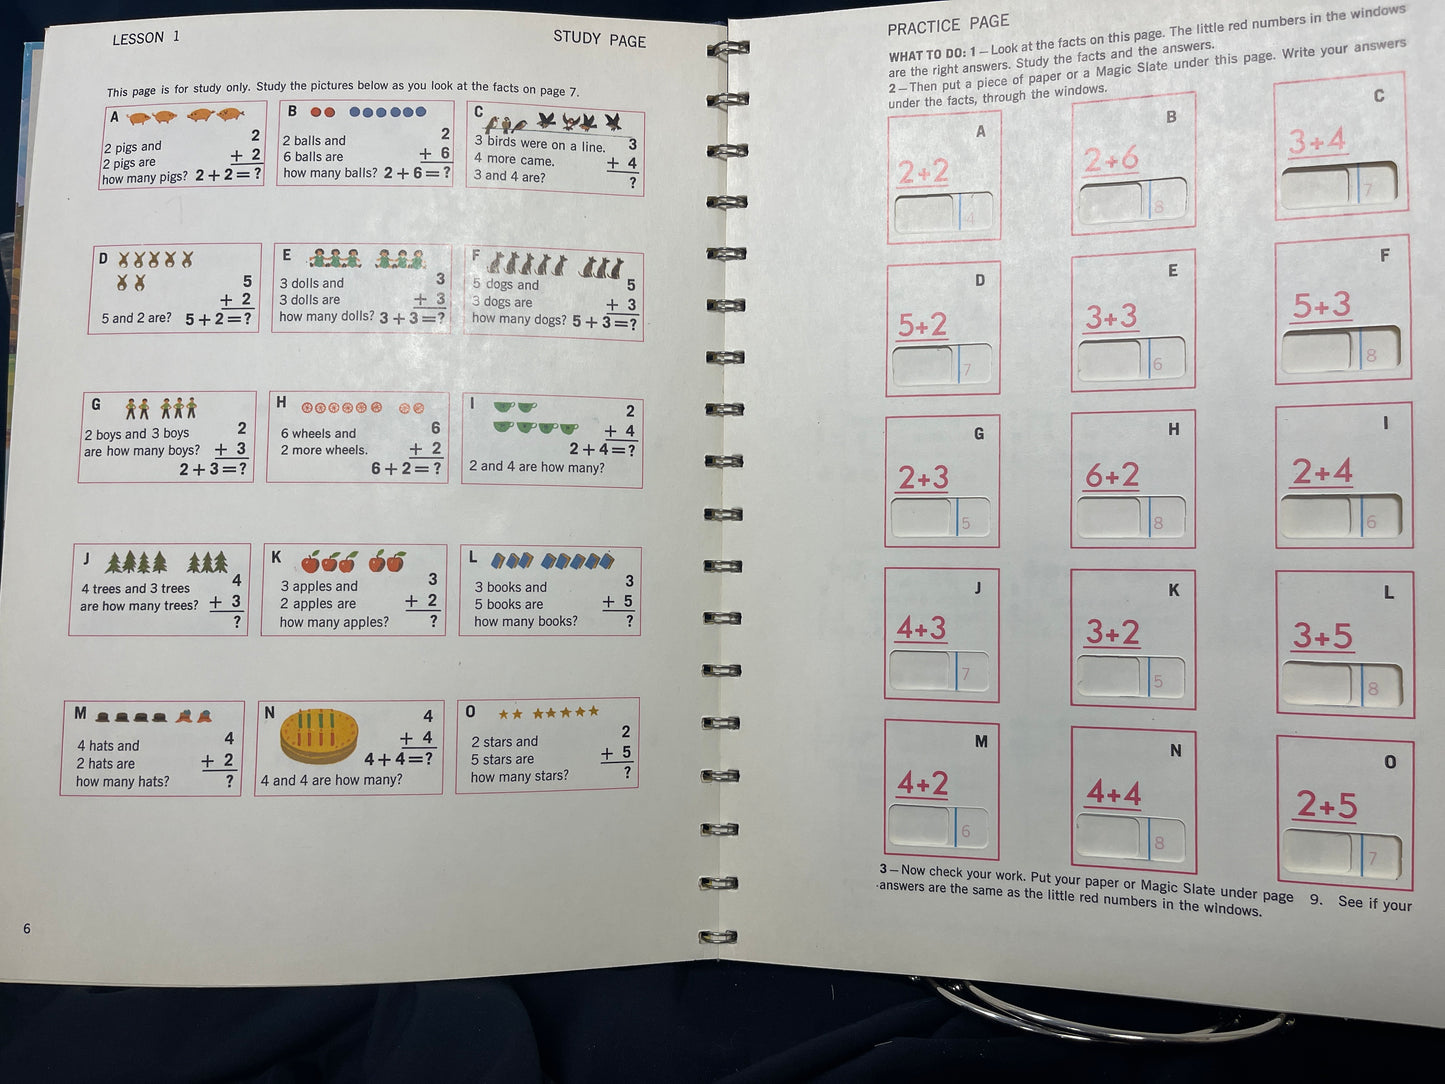 LESSON 1
STUDY PAGE
This page is for study only. Study the pictures below as you look at the facts on page 7.
A
2 pigs and
2 pigs are
how many pigs?
2
+ 2
2 + 2 = ?
B
2 balls and
6 balls are
how many balls?
2
+ 6
2 + 6 = ?
C
3 birds were on a line.
4 more came.
3 and 4 are?
3
+ 4
?
D
5
+ 2
5 and 2 are? 5 + 2 = ?
E
3 dolls and
3 dolls are
how many dolls?
3
+ 3
3 + 3 = ?
F
5 dogs and
3 dogs are
how many dogs?
5
+ 3
5 + 3 = ?
G
2 boys and 3 boys
are how many boys?
2
+ 3
2 + 3 = ?
H
6 wheels and
2 more wheels.
6
+ 2
6 + 2 = ?
I
2
+ 4
2 + 4 = ?
2 and 4 are how many?
J
4 trees and 3 trees
are how many trees?
4
+ 3
?
K
3 apples and
2 apples are
how many apples?
3
+ 2
?
L
3 books and
5 books are
how many books?
3
+ 5
?
M
4 hats and
2 hats are
how many hats?
4
+ 2
?
N
4
+ 4
4 + 4 = ?
4 and 4 are how many?
O
2 stars and
5 stars are
how many stars?
2
+ 5
?
6
PRACTICE PAGE
WHAT TO DO: 1 — Look at the facts on this page. The little red numbers in the windows
are the right answers. Study the facts and the answers.
2 — Then put a piece of paper or a Magic Slate under this page. Write your answers
under the facts, through the windows.
A
2+2
4
B
2+6
8
C
3+4
7
D
5+2
7
E
3+3
6
F
5+3
8
G
2+3
5
H
6+2
8
I
2+4
6
J
4+3
7
K
3+2
5
L
3+5
8
M
4+2
6
N
4+4
8
O
2+5
7
3 — Now check your work. Put your paper or Magic Slate under page 9. See if your
answers are the same as the little red numbers in the windows.